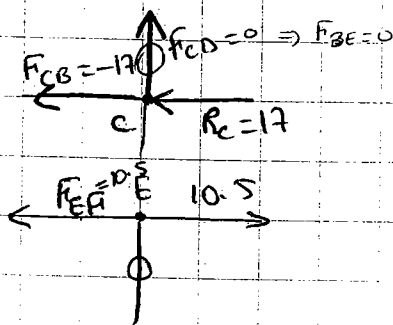 F_CD = 0 ⇒ F_BE = 0
F_CB = -17
C
R_C = 17
F_EF = 10.5
E
10.5